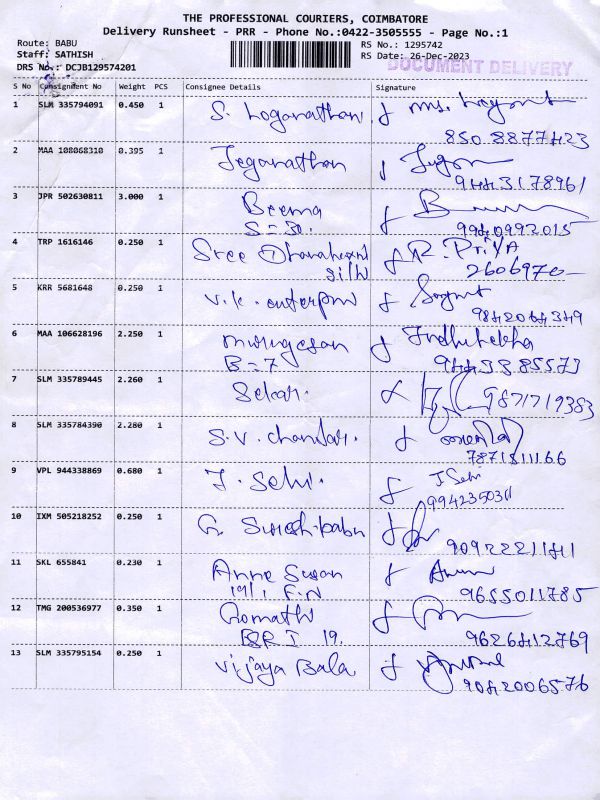 THE PROFESSIONAL COURIERS, COIMBATORE
Delivery Runsheet - PRR - Phone No.:0422-3505555 - Page No.:1
Route: BABU
Staff: SATHISH
DRS No.: DCJB129574201
RS No.: 1295742
RS Date: 26-Dec-2023
DOCUMENT DELIVERY
S No Consignment No Weight PCS Consignee Details Signature
1 SLM 335794091 0.450 1 S. Loganathan
850 8877423
2 MAA 108068310 0.395 1 Jeganathan
9443178961
3 JPR 502630811 3.000 1 Beema
S = 30. 9940992015
4 TRP 1616146 0.250 1 Sree silk R. Priya
2606970
5 KRR 5681648 0.250 1 V.K. enterprise
9842064349
6 MAA 106628196 2.250 1 Murugesan
B = 7 9443385573
7 SLM 335789445 2.260 1 Sekar. 9871719383
8 SLM 335784390 2.280 1 S.V. chandar.
7871511166
9 VPL 944338869 0.680 1 J. Selvi. J Selvi
9942350311
10 IXM 505218252 0.250 1 G. Suresh babu
11 SKL 655841 0.230 1 Anne Susan
19/1 F.N 9655011785
12 TMG 200536977 0.350 1 Gomathi
19. 9626412769
13 SLM 335795154 0.250 1 Vijaya Bala
9042006576